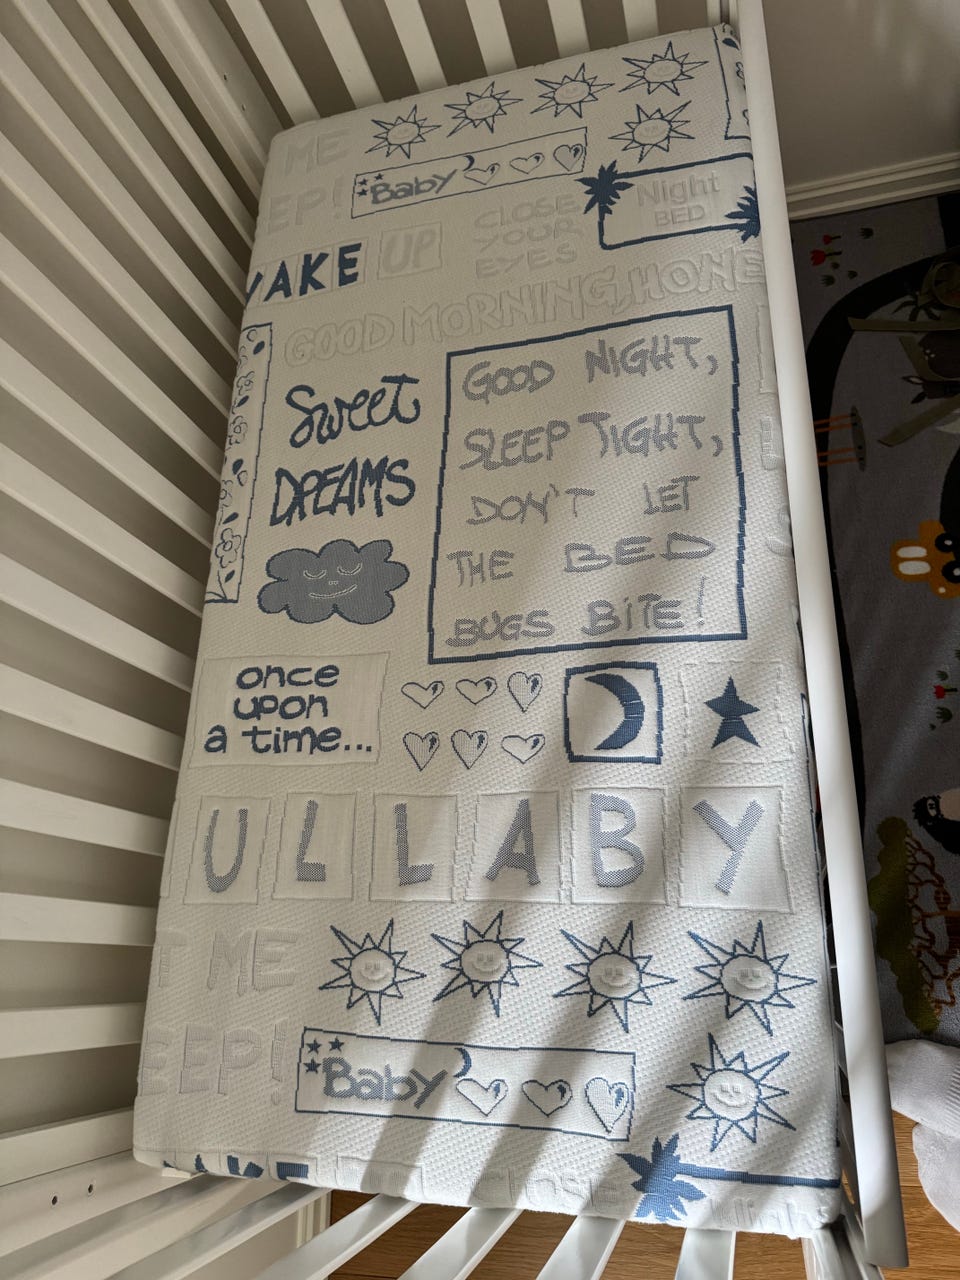 ME
EP!
Baby
Night
BED
CLOSE
YOUR
EYES
WAKE UP
GOOD MORNING, HONE
Sweet
DREAMS
GOOD NIGHT,
SLEEP TIGHT,
DON'T LET
THE BED
BUGS BITE!
once
upon
a time...
ULLABY
T ME
EEP!
Baby
Close
Night